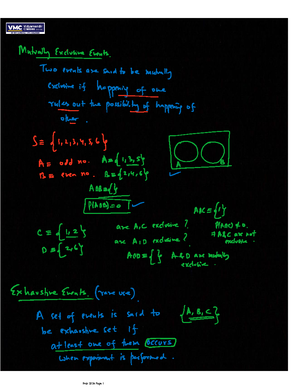 VMC
Mutually Exclusive Events.
Two events are said to be mutually
exclusive if happening of one
rules out the possibility of happening of
other.
S = {1, 2, 3, 4, 5, 6}
A = odd no. A = {1, 3, 5}
B = even no. B = {2, 4, 6}
A B
A∩B = { }
P(A∩B) = 0
C = {1, 2}
D = {2, 6}
are A, C exclusive?
are A, D exclusive?
A∩D = { } A & D are mutually
exclusive.
A∩C = {1}
P(A∩C) ≠ 0.
⇒ A & C are not
exclusive.
Exhaustive Events. (rare use).
A set of events is said to
be exhaustive set if
at least one of them occurs
when experiment is performed.
{A, B, C}